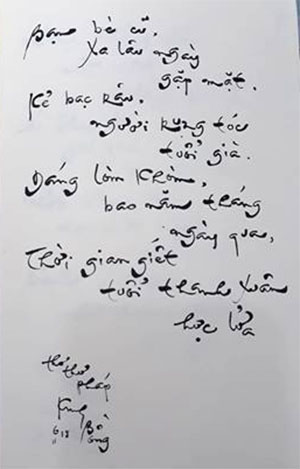 Bạn bè cũ,
Xa lâu ngày
gặp mặt.
Kẻ bạc râu,
người rụng tóc
tuổi già.
Dáng lòm khòm,
bao năm tháng
ngày qua,
Thời gian giết
tuổi thanh xuân
hực lửa
thơ thư
pháp